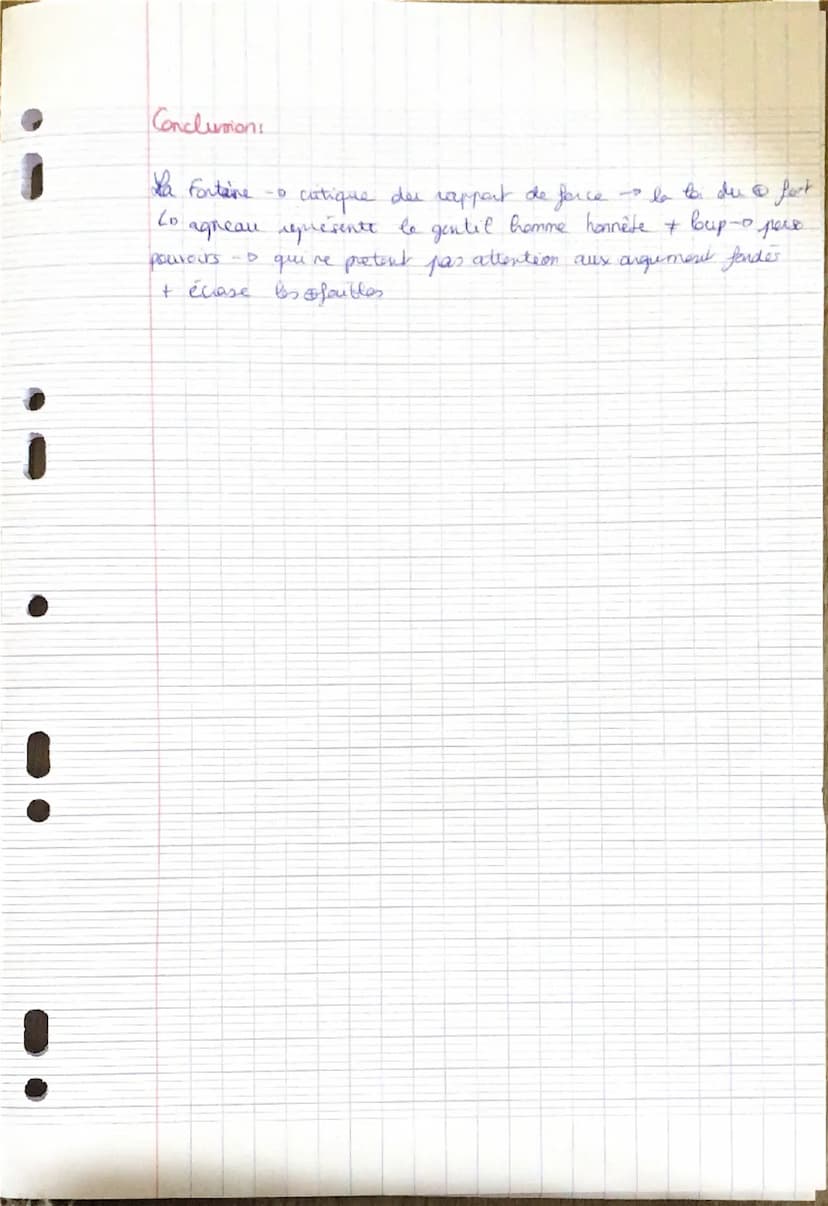 Conclusion:
La Fontaine → critique des rapport de force → la loi du ⊕ fort
↳ agneau représente le gentil homme honnête + loup →
pouvoirs → qui ne pretent pas attention aux argument fondés
+ écrase les ⊕ faibles